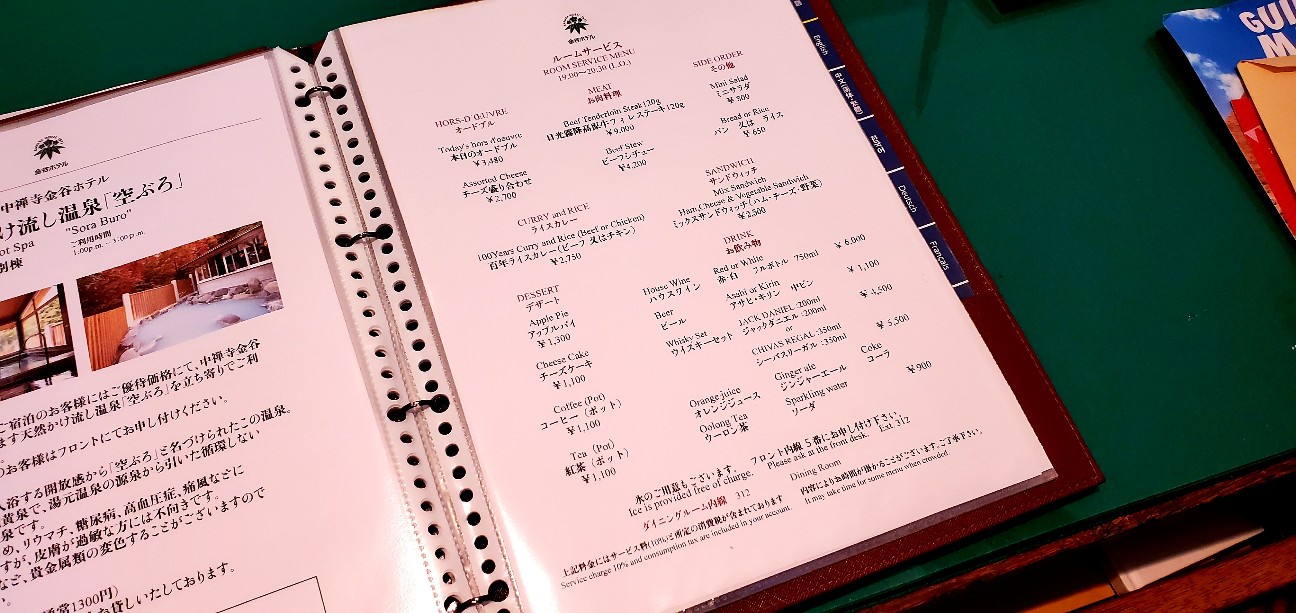 中禅寺金谷ホテル
け流し温泉「空ぶろ」
ot Spa "Sora Buro"
別棟
ご利用時間
ご宿泊のお客様にはご優待価格にて、中禅寺金谷
ます天然かけ流し温泉「空ぶろ」を立ち寄りでご利
のお客様はフロントにてお申し付けください。
入浴する開放感から「空ぶろ」と名づけられたこの温泉。
黄泉で、湯元温泉の源泉から引いた循環しない
泉です。
め、リウマチ、糖尿病、高血圧症、痛風などに
すが、皮膚が過敏な方には不向きです。
など、貴金属類の変色することがございますので
通常1300円)
お貸しいたしております。
金谷ホテル
ルームサービス
ROOM SERVICE MENU
19:00〜20:30 (L.O.)
HORS-D' ŒUVRE
オードブル
Today's hors d'oeuvre
本日のオードブル
¥3,480
Assorted Cheese
チーズ盛り合わせ
¥2,700
MEAT
お肉料理
Beef Tenderloin Steak 120g
日光霧降高原牛フィレステーキ 120g
¥9,000
Beef Stew
ビーフシチュー
¥4,200
SIDE ORDER
その他
Mini Salad
ミニサラダ
¥ 800
Bread or Rice
パン 又は ライス
¥ 650
CURRY and RICE
ライスカレー
100Years Curry and Rice (Beef or Chicken)
百年ライスカレー(ビーフ 又は チキン)
¥2,750
SANDWICH
サンドウィッチ
Mix Sandwich
Ham,Cheese & Vegetable Sandwich
ミックスサンドウィッチ(ハム・チーズ・野菜)
¥2,500
DESSERT
デザート
Apple Pie
アップルパイ
¥1,300
Cheese Cake
チーズケーキ
¥1,100
Coffee (Pot)
コーヒー(ポット)
¥1,100
Tea (Pot)
紅茶(ポット)
¥1,100
DRINK
お飲み物
House Wine Red or White ¥ 6,000
ハウスワイン 赤・白 フルボトル 750ml
Beer Asahi or Kirin ¥ 1,100
ビール アサヒ・キリン 中ビン
Whisky Set JACK DANIEL :200ml ¥ 4,500
ウイスキーセット ジャックダニエル :200ml
or
CHIVAS REGAL :350ml ¥ 5,500
シーバスリーガル :350ml
Orange juice Ginger ale Coke ¥900
オレンジジュース ジンジャーエール コーラ
Oolong Tea Sparkling water
ウーロン茶 ソーダ
氷のご用意もございます。 フロント内線 5 番にお申し付け下さい。
Ice is provided free of charge. Please ask at the front desk.
ダイニングルーム内線 312 Dining Room Ext. 312
上記料金にはサービス料(10%)と所定の消費税が含まれております
Service charge 10% and consumption tax are included in your account.
内容によりお時間が掛かることがございます。ご了承下さい。
It may take time for some menu when crowded.
English
한국어
Deutsch
Français